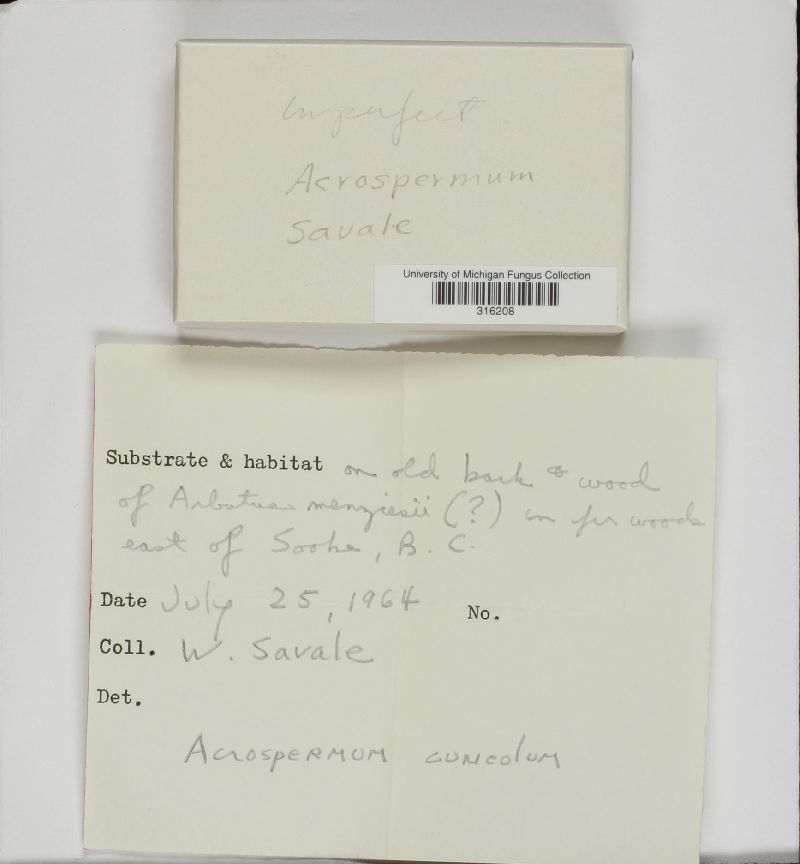 Imperfect
Acrospermum
Savale
University of Michigan Fungus Collection
316208
Substrate & habitat on old bark & wood
of Arbutus menziesii (?) in fir woods
east of Sooke, B. C.
Date July 25, 1964 No.
Coll. W. Savale
Det.
Acrospermum cuneolum